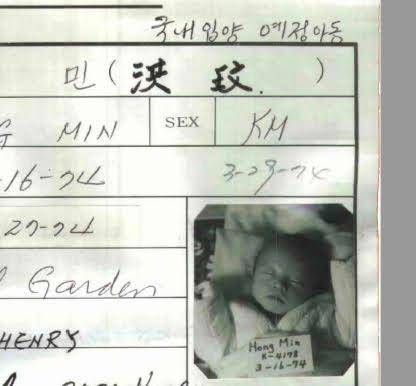 국내입양 예정아동
민 (洪 玟. )
MIN SEX KM
-16-74 3-29-74
27-74
Garden
HENRY
Hong Min
K-4178
3-16-74